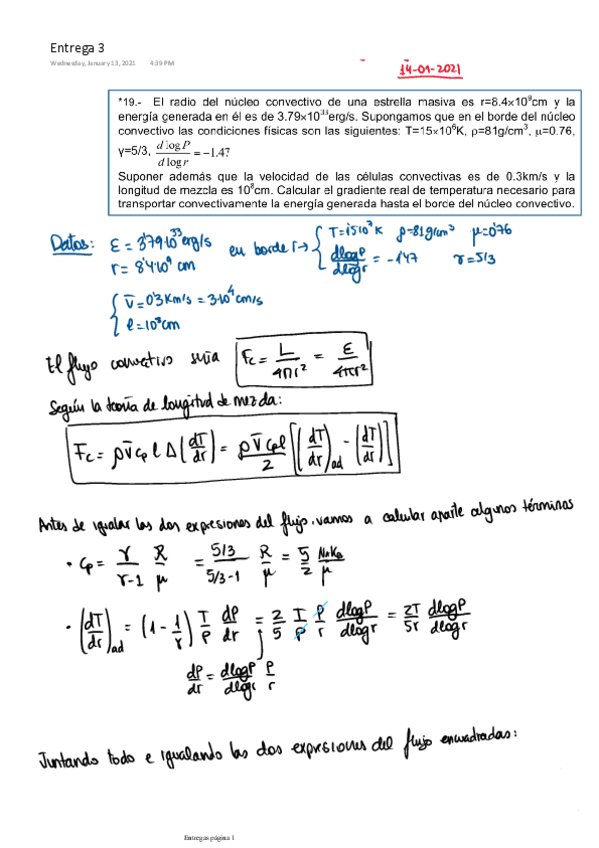 Entrega 3
Wednesday, January 13, 2021 4:39 PM
14-01-2021
*19.- El radio del núcleo convectivo de una estrella masiva es r=8.4×10⁹cm y la
energía generada en él es de 3.79×10³³erg/s. Supongamos que en el borde del núcleo
convectivo las condiciones físicas son las siguientes: T=15×10⁶K, ρ=81g/cm³, μ=0.76,
γ=5/3, d log P / d log r = −1.47
Suponer además que la velocidad de las células convectivas es de 0.3km/s y la
longitud de mezcla es 10⁸cm. Calcular el gradiente real de temperatura necesario para
transportar convectivamente la energía generada hasta el borde del núcleo convectivo.
Datos: ε = 3'79·10³³ erg/s en borde r → { T=15·10⁷K ρ=81g/cm³ μ=0'76
r = 8'4·10⁹ cm dlogP/dlogr = -1'47 γ=5/3
{ v̄=0'3 Km/s = 3·10⁴ cm/s
l=10⁸cm
El flujo convectivo sería Fc = L/4πr² = ε/4πr²
Según la teoría de longitud de mezcla:
Fc = ρ v̄ cp l Δ(dT/dr) = ρ v̄ cp l/2 [(dT/dr)ad - (dT/dr)]
Antes de igualar las dos expresiones del flujo, vamos a calcular aparte algunos términos
• cp = γ/γ-1 R/μ = 5/3 / 5/3-1 R/μ = 5/2 NAKB/μ
• (dT/dr)ad = (1 - 1/γ) T/P dP/dr = 2/5 T/P P/r dlogP/dlogr = 2T/5r dlogP/dlogr
dP/dr = dlogP/dlogr P/r
Juntando todo e igualando las dos expresiones del flujo encuadradas:
Entregas página 1